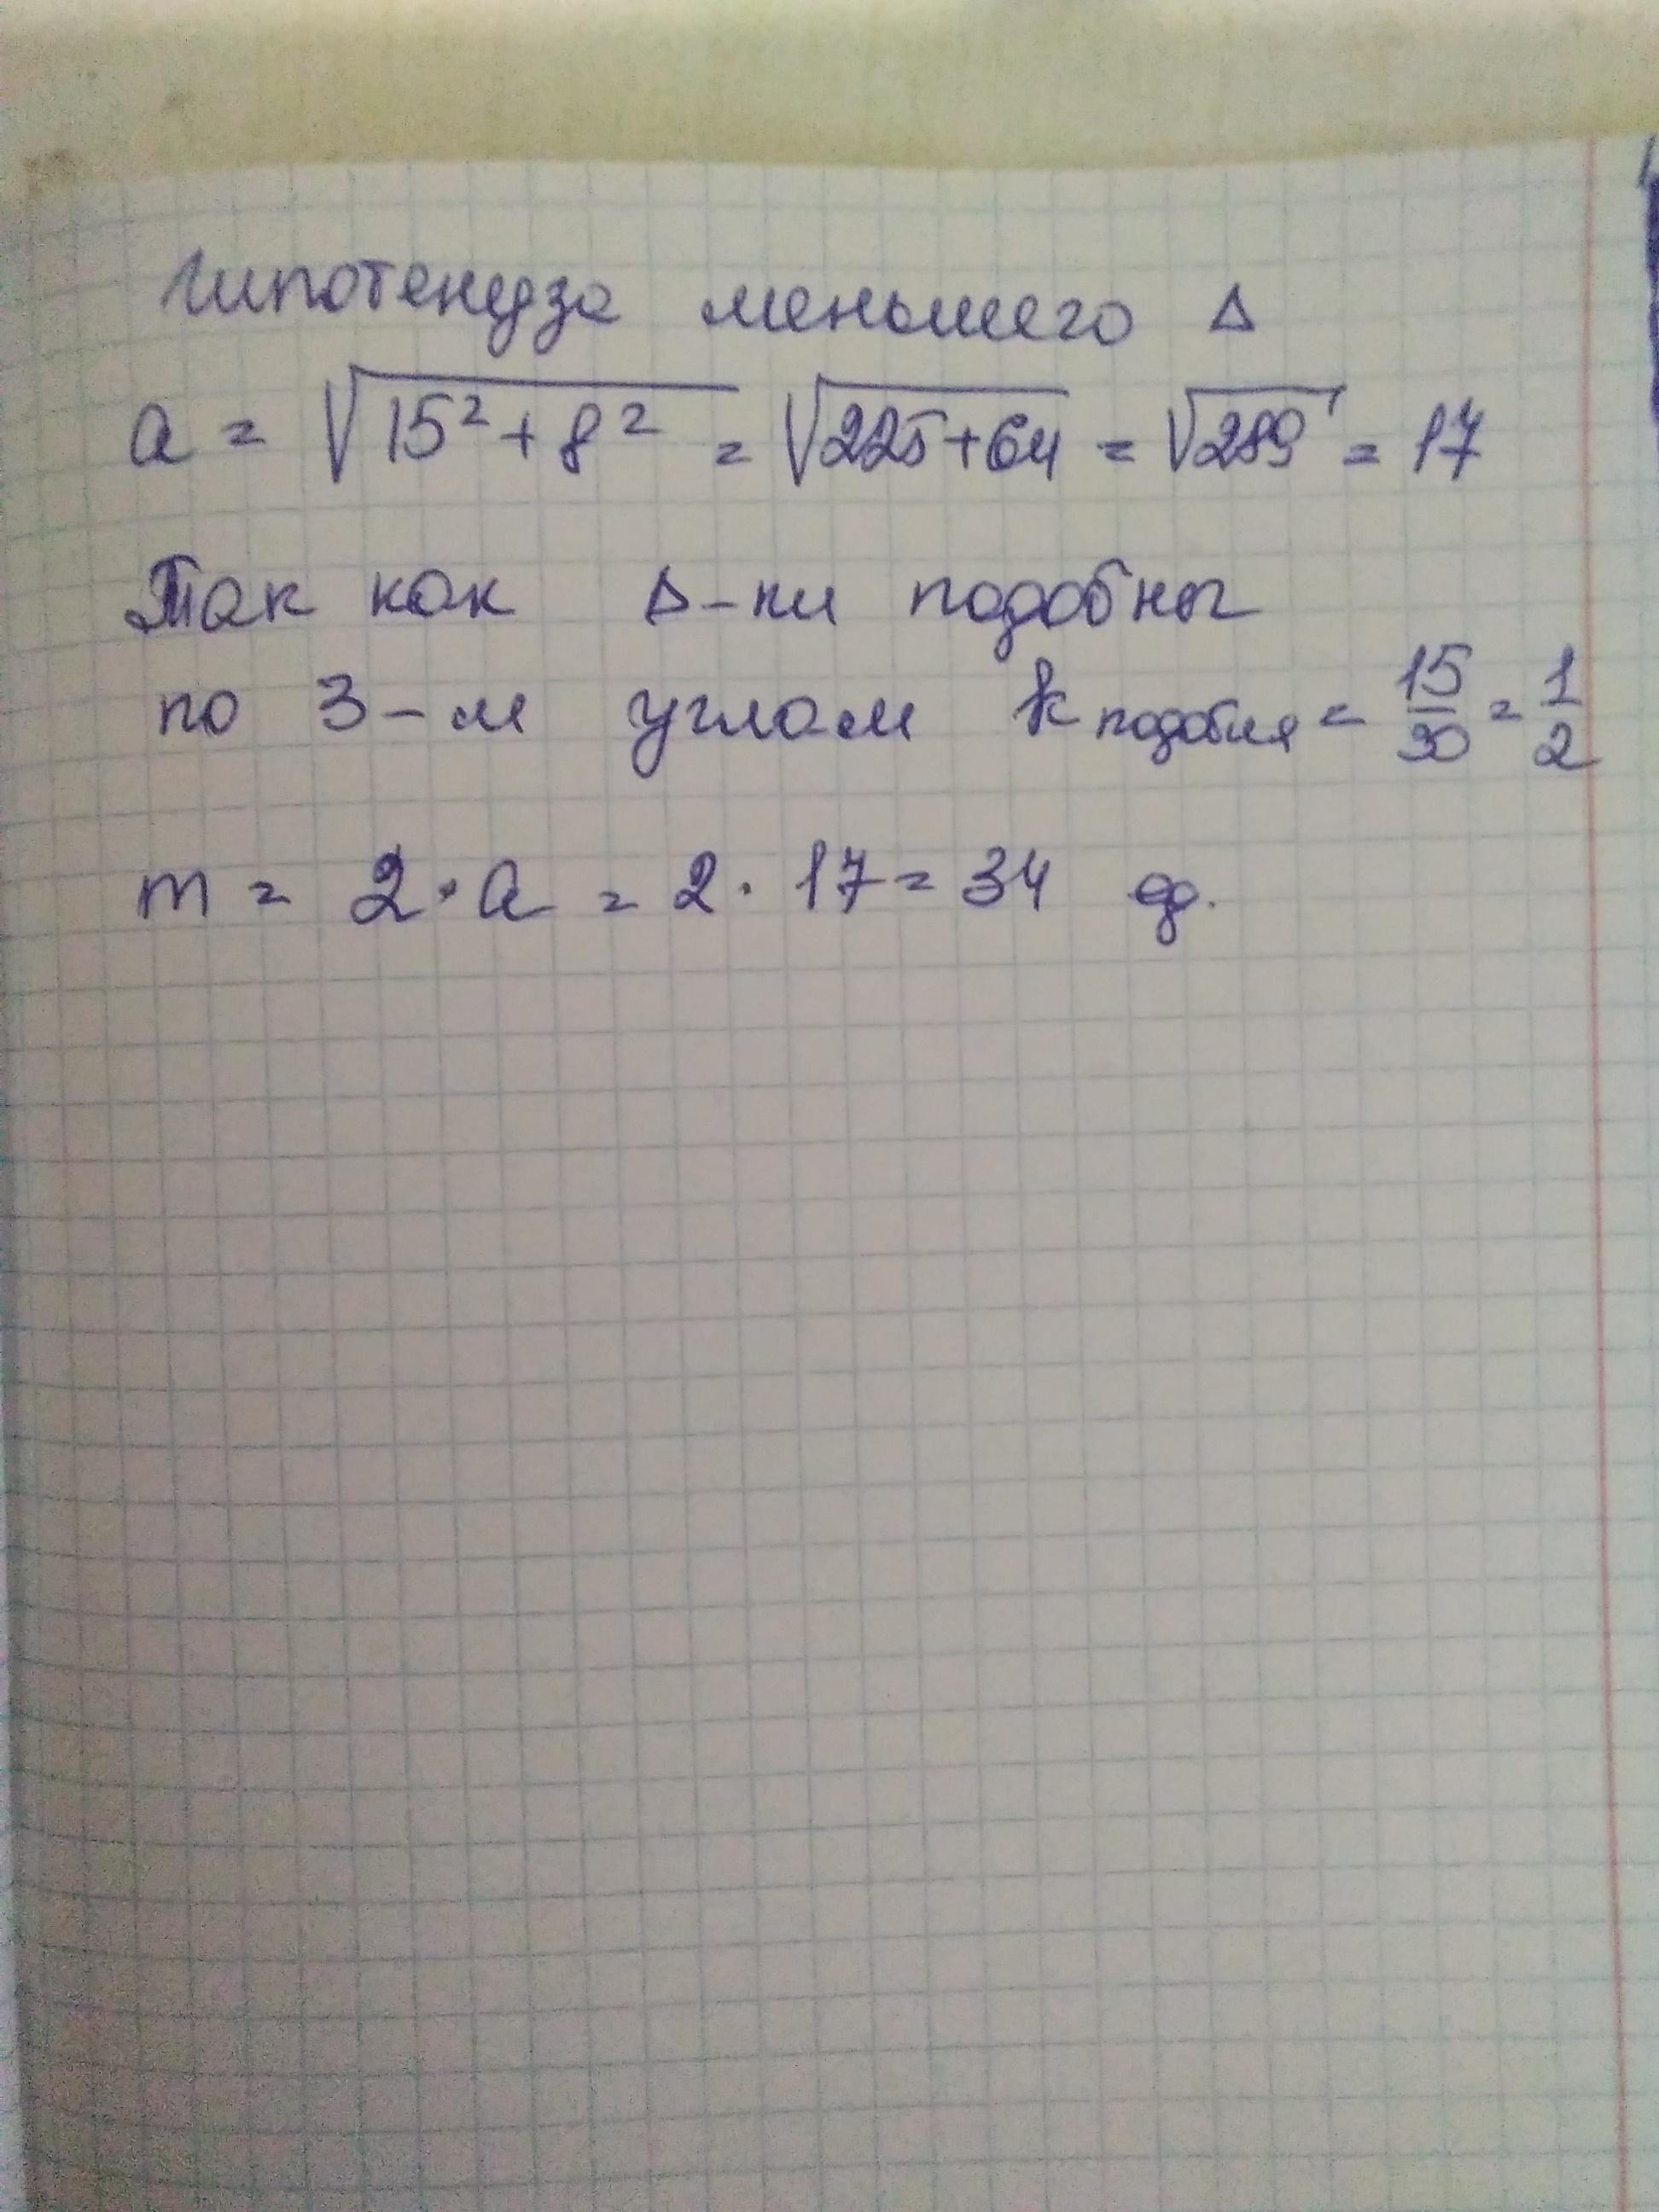 Гипотенуза меньшего Δ
a = √15² + 8² = √225+64 = √289 = 17
Так как Δ-ки подобны
по 3-м углам k подобия = 15/30 = 1/2
m = 2 · a = 2 · 17 = 34 ед.